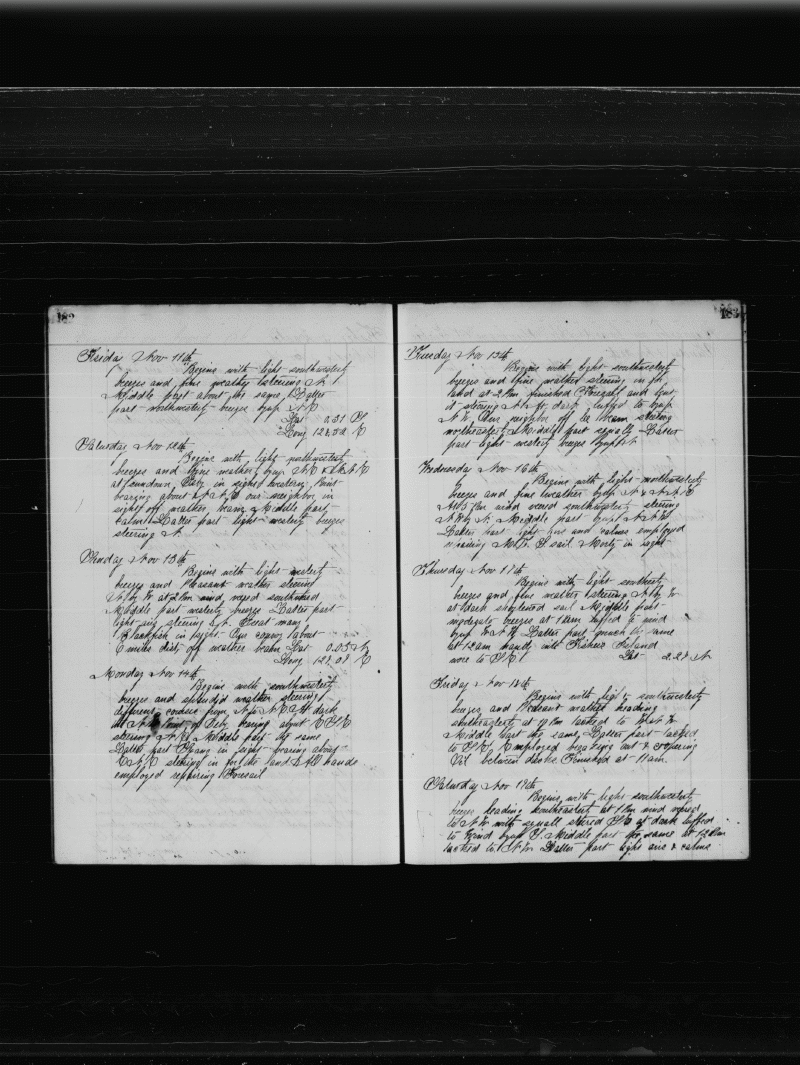 182
Friday Nov 11th
Begins with light southwesterly
breezes and fine weather steering N.
Middle part about the same Latter
part northwesterly breezes by up NE
Lat 0.31 S
Long 127.52 E
Saturday Nov 12th
Begins with light northwesterly
breezes and fine weather by up NE & NNE
at sundown in sight western Point
bearing about NNE our neighbor in
sight off weather beam Middle part
calms Latter part light westerly breezes
steering N
Sunday Nov 13th
Begins with light westerly
breezes and Pleasant weather steering
N by W at 2 Pm wind veered southward
Middle part westerly breezes Latter part
light airs steering N. Great many
Blackfish in sight. Our about
6 miles dist off weather beam Lat 0.05 N
Long 127.07 E
Monday Nov 14th
Begins with southwesterly
breezes and splendid weather steering
different courses from N to NE At dark
the N Point of bearing about E S E
steering Middle part the same
Latter part in sight bearing about
E N E steering in for the land All hands
employed repairing Foresail
183
Tuesday Nov 15th
Begins with light southwesterly
breezes and fine weather steering in for
land at 2 Pm finished Foresail and bent
it steering N At dark luffed to by up
N W Our neighbor off lee beam steering
northeasterly Middle part squally Latter
part light westerly breezes by up N
Wednesday Nov 16th
Begins with light northwesterly
breezes and fine weather by up N & NNE
At 5 Pm wind veered southwesterly steering
N W by N. Middle part by up NNW
Latter part light airs and calms employed
repairing M.T. S sail Morty in sight
Thursday Nov 17th
Begins with light southerly
breezes and fine weather steering N by W
at dark shortened sail Middle part
moderate breezes at 12 am luffed to wind
by up W N W Latter part much the same
at 12 am Island
wore to S E Lat 2.27 N
Friday Nov 18th
Begins with light southwesterly
breezes and Pleasant weather heading
southeasterly at Pm tacked to W N W
Middle Part the same, Latter part tacked
to S E, Employed breaking out & coopering
Oil between decks Finished at 11 am.
Saturday Nov 19th
Begins with light southwesterly
breezes heading southeasterly at 4 Pm wind veered
to N W with squall steered S E at dark luffed
to Wind by up S Middle part the same at 12 Pm
tacked to N W Latter part light airs & calms